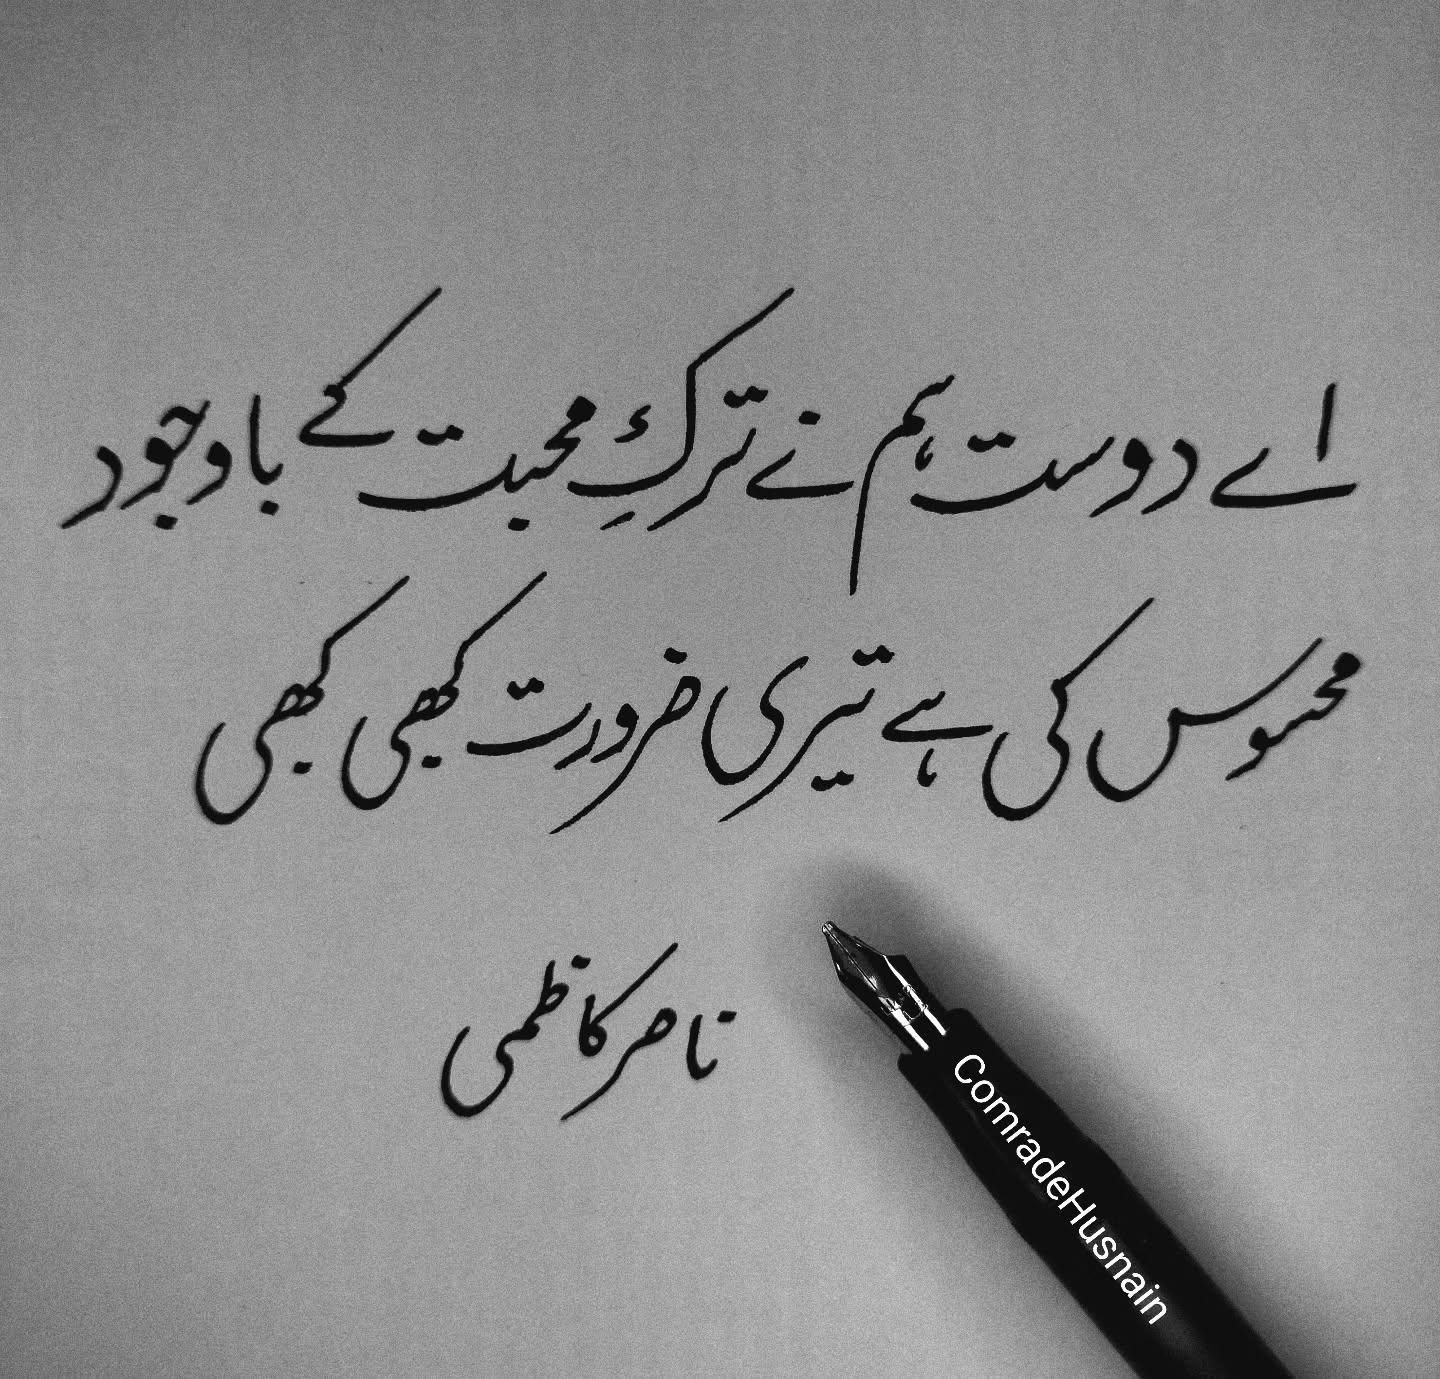 اے دوست ہم نے ترکِ محبت کے باوجود
محسوس کی ہے تیری ضرورت کبھی کبھی
ناصر کاظمی
ComradeHusnain